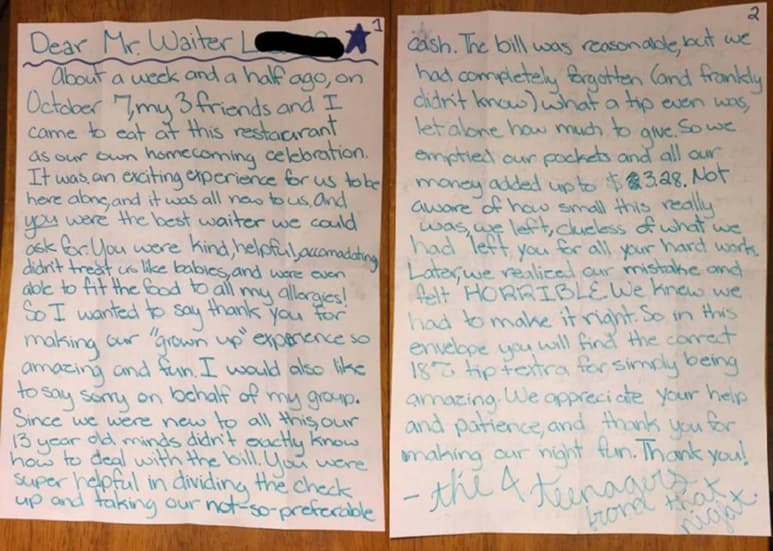 1
Dear Mr. Waiter L
About a week and a half ago, on
October 7, my 3 friends and I
came to eat at this restaurant
as our own homecoming celebration.
It was an exciting experience for us to be
here alone, and it was all new to us. And
you were the best waiter we could
ask for. You were kind, helpful, accomadating,
didn't treat us like babies, and were even
able to fit the food to all my allergies!
So I wanted to say thank you for
making our "grown up" experience so
amazing and fun. I would also like
to say sorry on behalf of my group.
Since we were new to all this, our
13 year old minds didn't exactly know
how to deal with the bill. You were
super helpful in dividing the check
up and taking our not-so-preferable
2
cash. The bill was reasonable, but we
had completely forgotten (and frankly
didn't know) what a tip even was,
let alone how much to give. So we
emptied our pockets and all our
money added up to $3.28. Not
aware of how small this really
was, we left, clueless of what we
had left you for all your hard work.
Later, we realized our mistake and
felt HORRIBLE. We knew we
had to make it right. So in this
envelope you will find the correct
18% tip + extra for simply being
amazing. We appreciate your help
and patience, and thank you for
making our night fun. Thank you!
- the 4 teenagers
from that
night